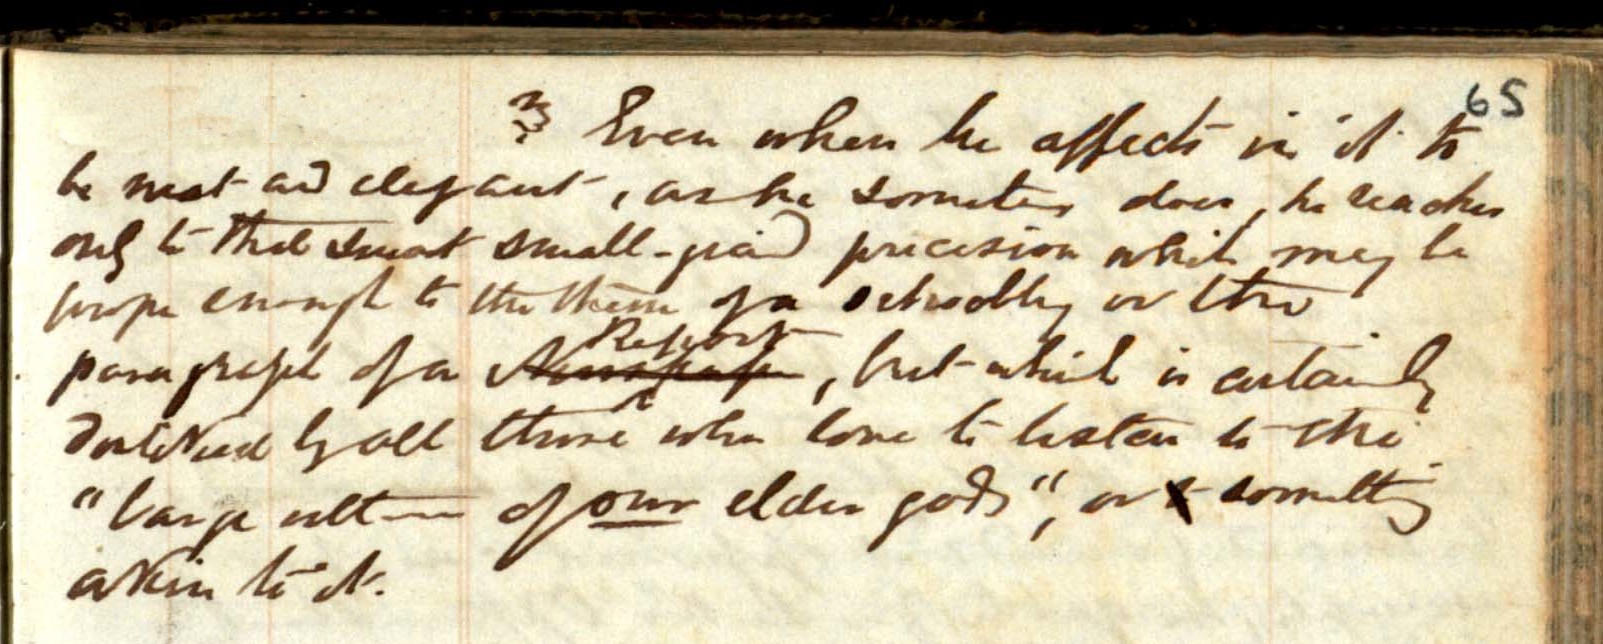 65
Even when he affects in it to
be neat and elegant, as he sometimes does, he reaches
only to that smart small-grained precision which may be
proper enough to the theme of a schoolboy or the
Report
paragraph of a Newspaper, but which is certainly
by all those who love to listen to the
"large utterance of our elder gods", or something
akin to it.